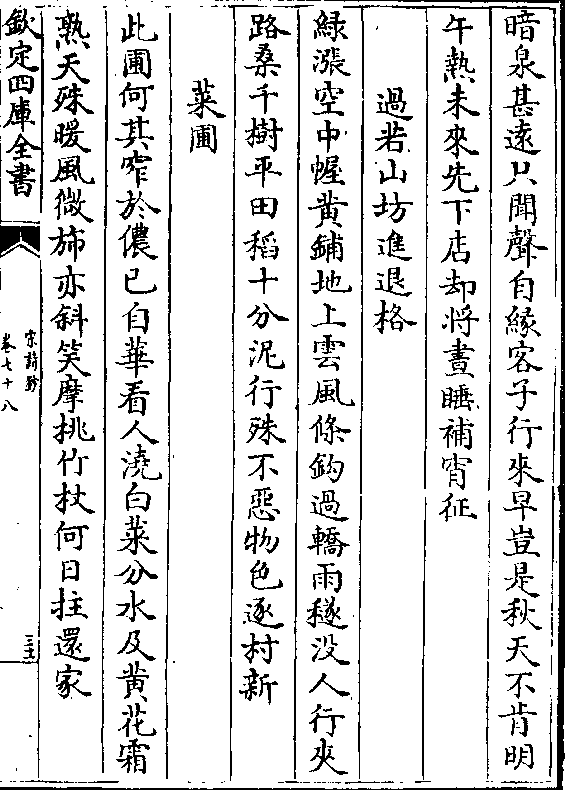 暗泉甚逺只聞聲自緣客子行來早豈是秋天不肯明
午熱未來先下店却將晝睡補宵征
過若山坊進退格
綠漲空中幄黄鋪地上雲風條鈎過轎雨穟没人行夾
路桑千樹平田稻十分泥行殊不惡物色逐村新
菜圃
此圃何其窄於儂已自華看人澆白菜分水及黄花霜
熟天殊暖風微斾亦斜笑摩挑竹杖何日拄還家
欽定四庫全書
宋詩鈔
卷七十八